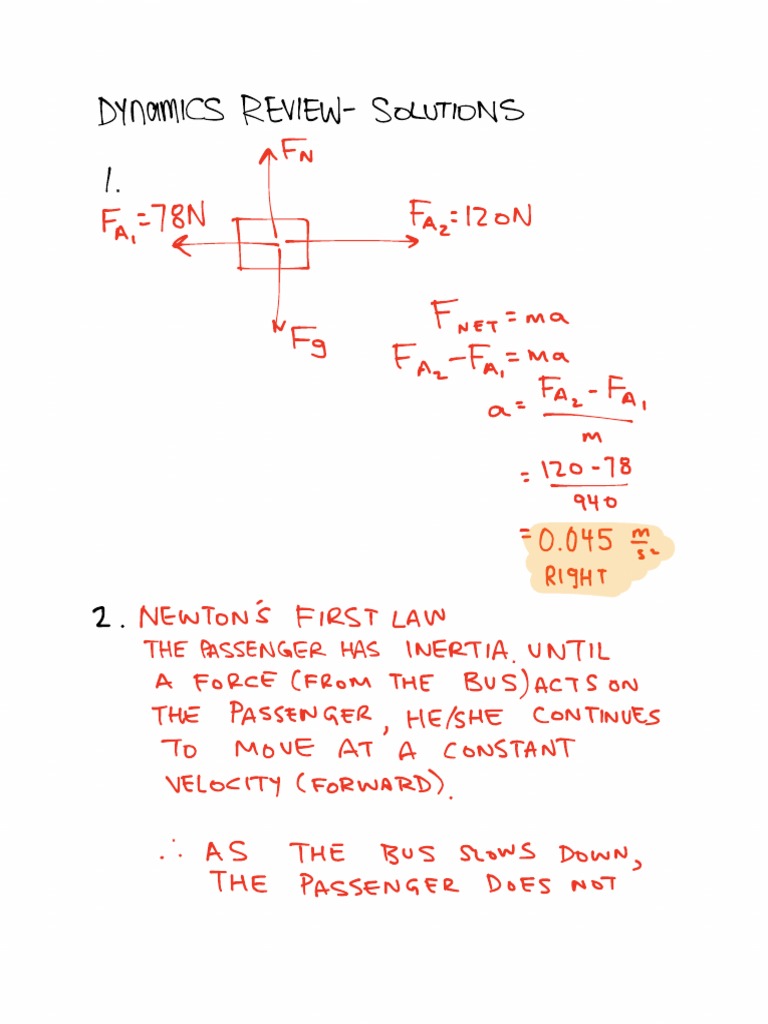 DYNAMICS REVIEW- SOLUTIONS
1.
F_N
F_A₁=78N
F_A₂=120N
F_g
F_NET=ma
F_A₂-F_A₁=ma
a=F_A₂-F_A₁
m
=120-78
940
=0.045 m/s²
RIGHT
2. NEWTON'S FIRST LAW
THE PASSENGER HAS INERTIA. UNTIL
A FORCE (FROM THE BUS) ACTS ON
THE PASSENGER, HE/SHE CONTINUES
TO MOVE AT A CONSTANT
VELOCITY (FORWARD).
∴ AS THE BUS SLOWS DOWN,
THE PASSENGER DOES NOT